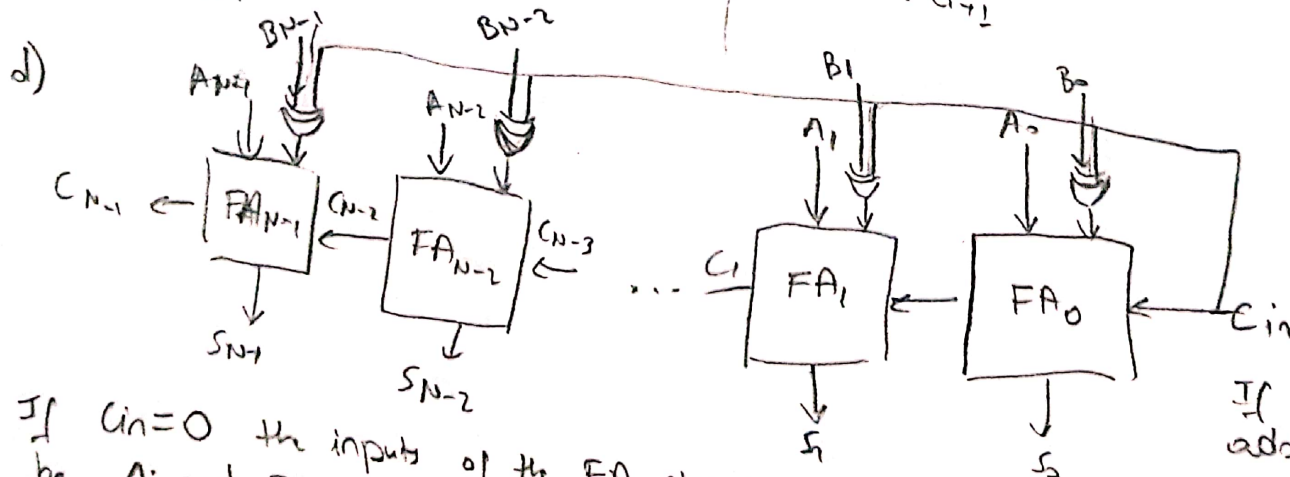 Ci+1
d)
BN-1 BN-2 B1 B0
AN-1 AN-2 A1 A0
CN-1 FAN-1 CN-2 FAN-2 CN-3 ... C1 FA1 FA0 Cin
SN-1 SN-2 S1 S0
If Cin=0 the inputs of the FA
If
be